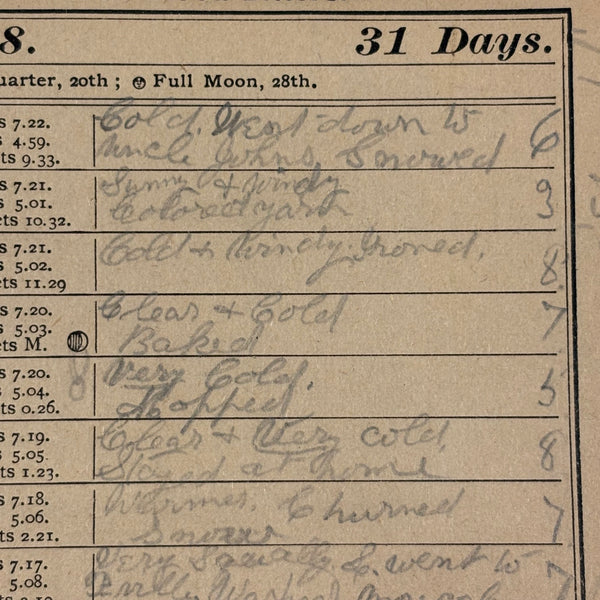 8. 31 Days.
uarter, 20th; Full Moon, 28th.
s 7.22. Cold. Went down to 6
s 4.59. Uncle Johns, Snowed
ts 9.33.
s 7.21. Sunny & windy 9
s 5.01. Colored yarn 3
ets 10.32.
s 7.21. Cold & Windy. Ironed.
s 5.02. 8
ets 11.29
s 7.20. Clear & Cold 7
s 5.03. Baked
ets M.
s 7.20. Very Cold.
s 5.04. Hopped 5
ts 0.26.
s 7.19. Clear & Very cold, 8
s 5.05 Stayed at home
ts 1.23.
s 7.18. Warmer. Churned 7
5.06. Snow
ts 2.21.
s 7.17. Very Squally E. went to 7
5.08. Washed